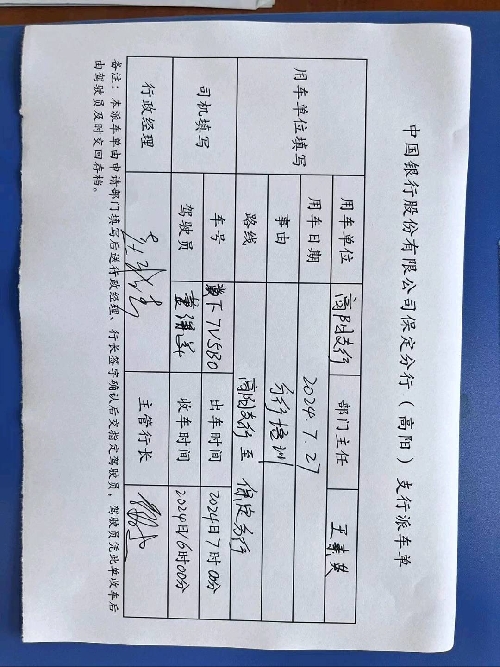 中国银行股份有限公司保定分行（高阳）支行派车单
用车单位填写 用车单位 高阳支行 部门主任 王素英
用车日期 2024.7.27
事由 分行培训
路线 高阳支行至保定分行
司机填写 车号 冀F7V5B0 出车时间 2024日7时00分
驾驶员 收车时间 2024日16时00分
行政经理 主管行长
备注：本派车单由申请部门填写后送行政经理、行长签字确认后交指定驾驶员，驾驶员凭此单收车后
由驾驶员及时交回存档。